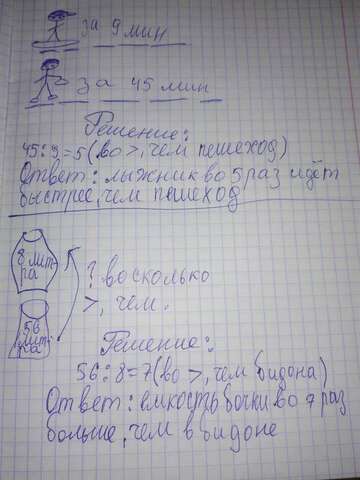 за 9 мин
за 45 мин
Решение:
45:9=5(во >, чем пешеход)
Ответ: лыжник во 5 раз идёт
быстрее, чем пешеход
8 лит-
ра
? во сколько
>, чем.
56
лит-
ра
Решение:
56:8=7(во >, чем бидона)
Ответ: ёмкость бочки во 7 раз
больше, чем в бидоне